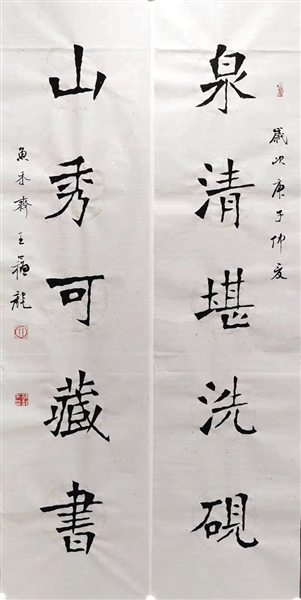 泉清堪洗砚
歲次庚子仲夏
山秀可藏書
魚禾齋王福龍